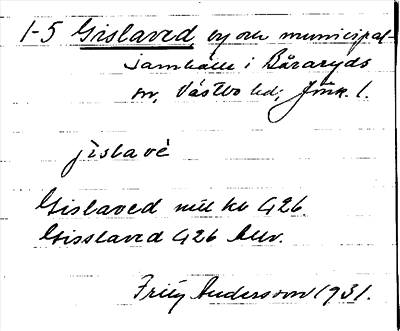 1-5 Gislaved by och municipal-
samhälle i Båraryds
sn, Västbo hd, Jönk. l.
jislavé
Gislaved mtl kb G26.
Gisslaved G26
Fritz Andersson 1931.